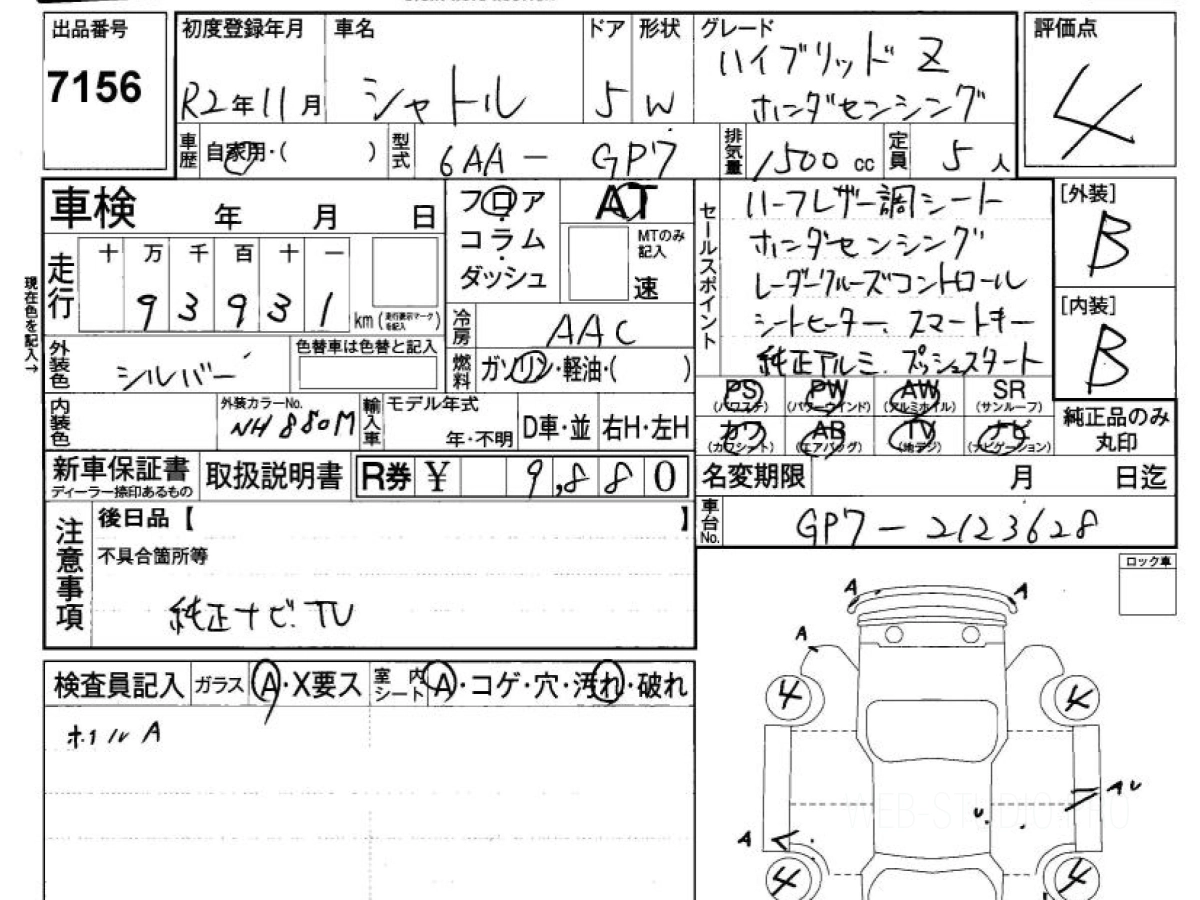 出品番号
7156
初度登録年月
R2年11月
車名
シャトル
ドア
5
形状
W
グレード
ハイブリッド Z
ホンダセンシング
評価点
4
車歴
自家用・( )
型式
6AA - GP7
排気量
1500 cc
定員
5人
車検
年 月 日
フロア
コラム
ダッシュ
AT
MTのみ
記入
速
セールスポイント
ハーフレザー調シート
ホンダセンシング
レーダークルーズコントロール
シートヒーター、スマートキー
純正アルミ、プッシュスタート
[外装]
B
[内装]
B
現在色を記入→
走行
十 万 千 百 十 一
9 3 9 3 1
km(走行表示マークを記入)
冷房
AAC
外装色
シルバー
色替車は色替と記入
燃料
ガソリン・軽油・( )
PS
(パワステ)
PW
(パワーウインド)
AW
(アルミホイル)
SR
(サンルーフ)
カワ
(カワシート)
AB
(エアバッグ)
TV
(地デジ)
ナビ
(ナビゲーション)
純正品のみ
丸印
内装色
外装カラーNo.
NH880M
輸入車
モデル年式
年・不明
D車・並
右H・左H
新車保証書
ディーラー捺印あるもの
取扱説明書
R券 ¥ 9,880
名変期限
月 日迄
車台No.
GP7-2123628
注意事項
後日品【 】
不具合箇所等
純正ナビ.TV
ロック車
検査員記入
ガラス
A・X要ス
室内
シート
A・コゲ・穴・汚れ・破れ
ホイルA
A
A
A
4
4
AU
U
A
4
4
WEB-STUDIO4.RU